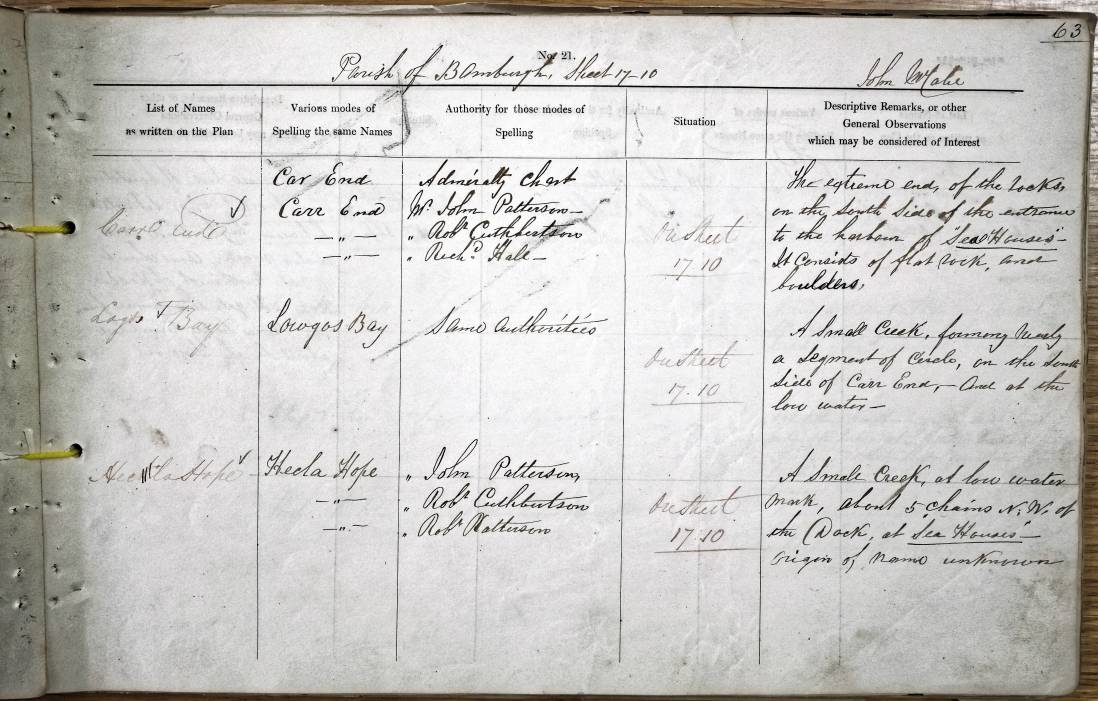 63
No. 21.
Parish of Bamburgh, Sheet 17-10
John
List of Names
as written on the Plan
Various modes of
Spelling the same Names
Authority for those modes of
Spelling
Situation
Descriptive Remarks, or other
General Observations
which may be considered of Interest
Carr End
Car End
Carr End
—"—
—"—
Admiralty Chart
Mr. John Patterson—
" Robt Cuthbertson
" Richd Hall—
On Sheet
17.10
The extreme end, of the rocks,
on the South Side of the entrance
to the harbour of "Sea Houses"—
It Consists of flat rock, and
boulders,
Bay
Lowgos Bay
Same authorities
On Sheet
17.10
A Small Creek, forming nearly
a Segment of Circle, on the South
Side of Carr End,— And at the
low water—
Hecla Hope
Hecla Hope
—"—
—"—
" John Patterson,
" Robt Cuthbertson
" Robt Patterson
On Sheet
17.10
A Small Creek, at low water
mark, about 5 chains N.W. of
the Dock, at Sea Houses—
Origin of name unknown